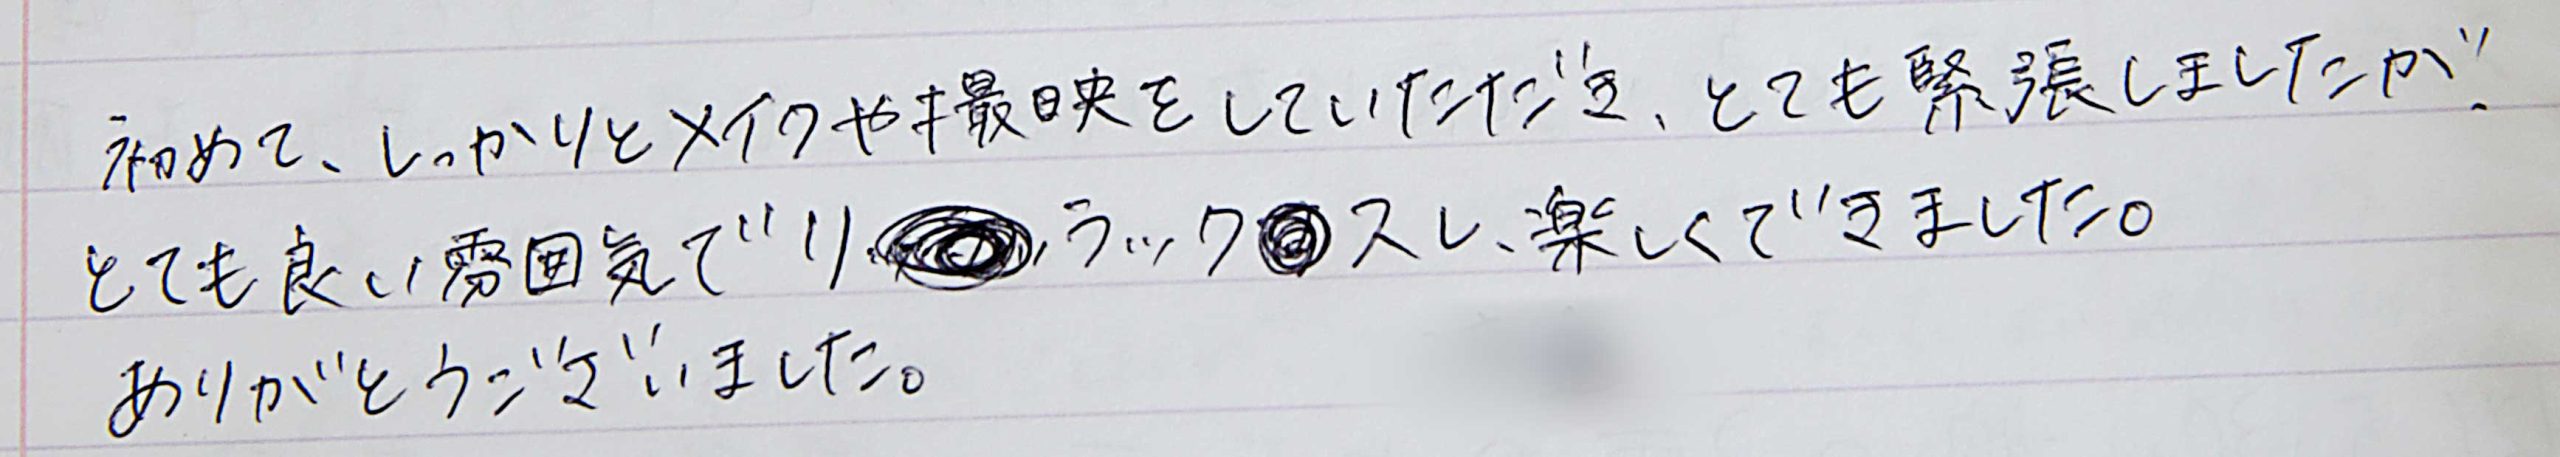 初めて、しっかりとメイクや撮映をしていただき、とても緊張しましたが、
とても良い雰囲気でリラックスし、楽しくできました。
ありがとうございました。